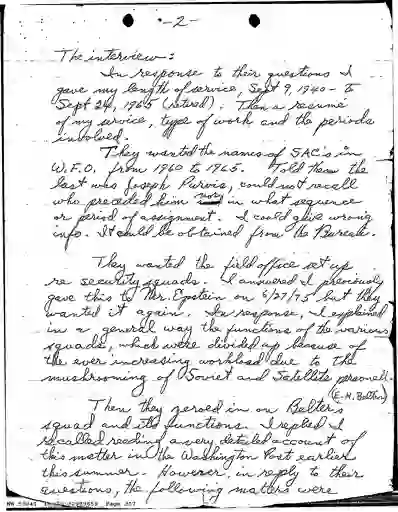 -2-
The interview:
In response to their questions I
gave my length of service, Sept 9, 1940 - to
Sept 24, 1965 (retired). Then a resumé
of my service, type of work and the periods
involved.
They wanted the names of SAC's in
W.F.O. from 1960 to 1965. Told them the
last was Joseph Purvis, could not recall
who preceded him in what sequence
or period of assignment. I could give wrong
info. It could be obtained from the Bureau.
They wanted the field office set up
re security squads. I answered I previously
gave this to Mr. Epstein on 6/27/75 but they
wanted it again. In response, I explained
in a general way the functions of the various
squads, which were divided up because of
the ever increasing workload due to the
mushrooming of Soviet and Satellite personell.
(E.H. Belter)
Then they zeroed in on Belter's
squad and its functions. I replied I
recalled reading a very detailed account of
this matter in the Washington Post earlier
this summer. However, in reply to their
questions, the following matters were
Page 207